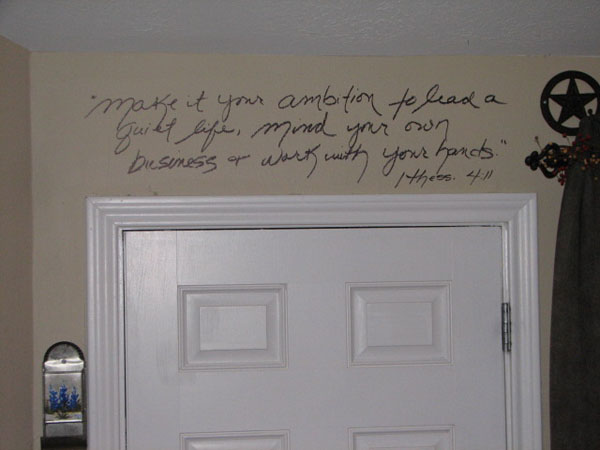 "make it your ambition to lead a
quiet life, mind your own
business & work with your hands."
1 thess. 4:11